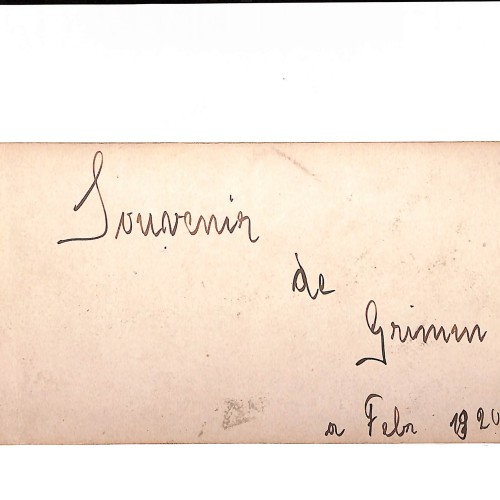 Souvenir
de
Grimm
Febr 1920